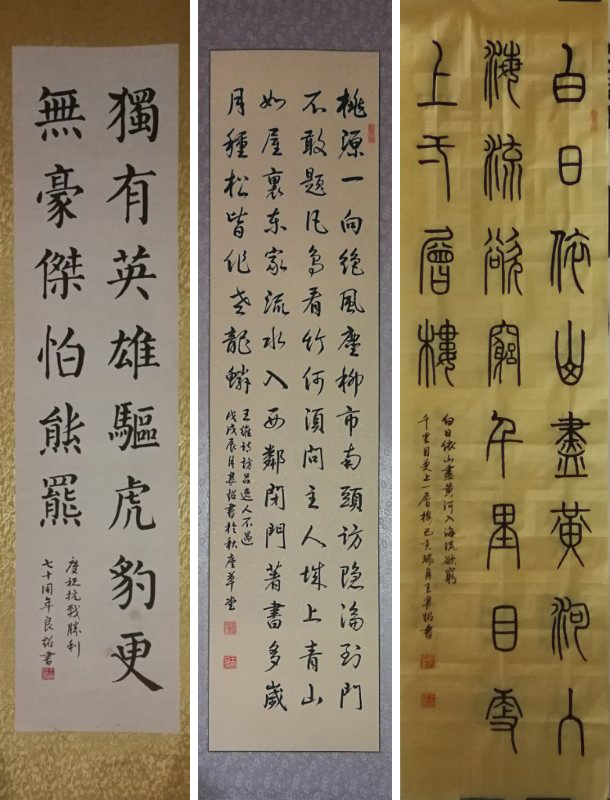 獨有英雄驅虎豹更
無豪傑怕熊羆
慶祝抗戰勝利
七十周年良書
桃源一向絕風塵柳市南頭访隐淪到門
不敢題凡鳥看竹何須問主人城上青山
如屋裏东家流水入西鄰閉門著書多歲
月種松皆作老龍鱗
王維詩访吕逸人不遇
戊戌辰月書於秋草堂
白日依山盡黃河入
海流欲窮千里目更
上一層樓
白日依山盡黃河入海流欲窮
千里目更上一層樓己亥端月王書